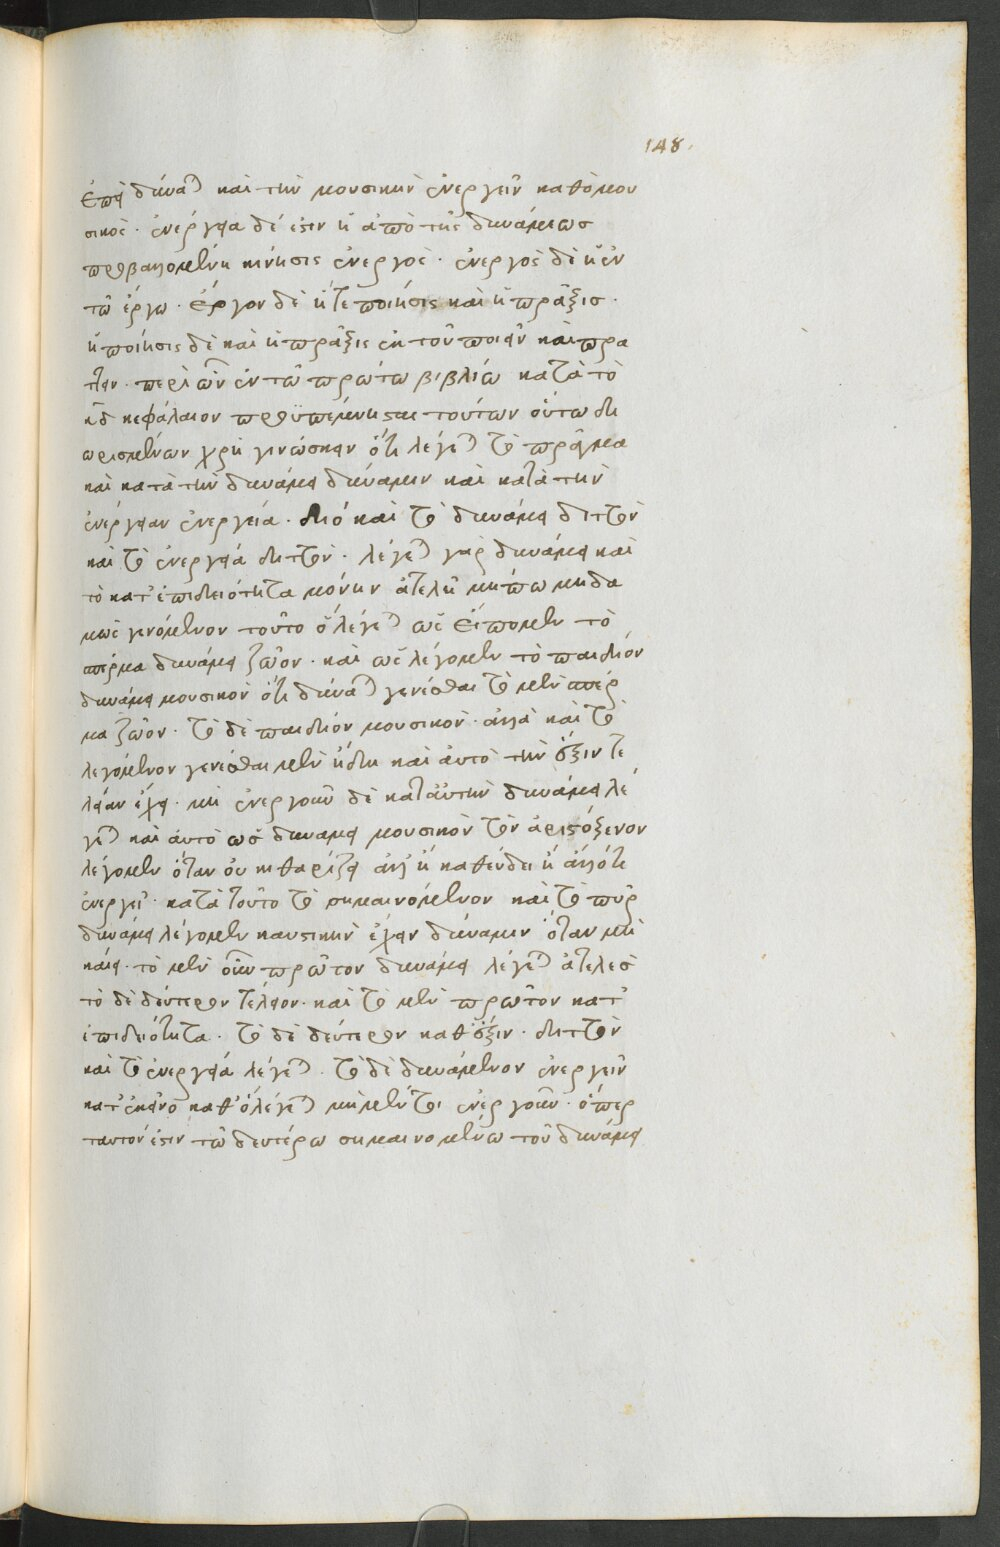 148.
ἐπεὶ δύναται καὶ τὴν μουσικὴν ἐνεργεῖν καθὸ μου
σικός· ἐνέργεια δέ ἐστιν ἡ ἀπὸ τῆς δυνάμεως
προβαλλομένη κίνησις ἐνεργός· ἐνεργὸς δὲ ἡ ἐν
τῷ ἔργω· ἔργον δὲ ἥ τε ποίησις καὶ ἡ πρᾶξις·
ἡ ποίησις δὲ καὶ ἡ πρᾶξις ἐκ τοῦ ποιεῖν καὶ πρά
ττειν· περὶ ὧν ἐν τῶ πρώτω βιβλίω κατὰ τὸ
κδ κεφάλαιον προϋπεμνήσαι τούτων οὕτω δι
ωρισμένων χρὴ γινώσκειν ὅτι λέγεται τὸ πρᾶγμα
καὶ κατὰ τὴν δυνάμει δύναμιν καὶ κατὰ τὴν
ἐνέργειαν ἐνεργεία· διὸ καὶ τὸ δυνάμει διττὸν
καὶ τὸ ἐνεργεία διττόν· λέγεται γὰρ δυνάμει καὶ
τὸ κατ' ἐπιδειότητα μόνην ἀτελῆ μήπω μηδα
μῶς γινόμενον τοῦτο ὃ λέγεται ὡς εἴπομεν τὸ
σπέρμα δυνάμει ζῶον· καὶ ὡς λέγομεν τὸ παιδίον
δυνάμει μουσικὸν ὅτι δύναται γενέσθαι τὸ μὲν σπέρ
μα ζῶον· τὸ δὲ παιδίον μουσικόν· ἀλλὰ καὶ τὸ
λεγόμενον γενέσθαι μὲν ἤδη καὶ αὐτὸ τὴν ἕξιν τε
λείαν ἔχει· μὴ ἐνεργοῦν δὲ κατ' αὐτὴν δυνάμει λέ
γεται καὶ αὐτὸ ὡς δυνάμει μουσικὸν τὸν ἀριστόξενον
λέγομεν ὅταν οὐ κιθαρίζει ἀλλ' ἢ καθεύδει ἢ ἄλλό τι
ἐνεργεῖ· κατὰ τοῦτο τὸ σημαινόμενον καὶ τὸ πῦρ
δυνάμει λέγομεν καυστικὴν ἔχειν δύναμιν ὅταν μὴ
καίει· τὸ μὲν οὖν πρῶτον δυνάμει λέγεται ἀτελὲς
τὸ δὲ δεύτερον τέλειον· καὶ τὸ μὲν πρῶτον κατ'
ἐπιδειότητα· τὸ δὲ δεύτερον καθ' ἕξιν· διττὸν
καὶ τὸ ἐνεργεία λέγεται· τὸ δὲ δυνάμενον ἐνεργεῖν
κατ' ἐκεῖνο καθ' ὃ λέγεται μὴ μέντοι ἐνεργοῦν· ὅπερ
ταυτόν ἐστιν τῶ δευτέρω σημαινομένω τοῦ δυνάμει